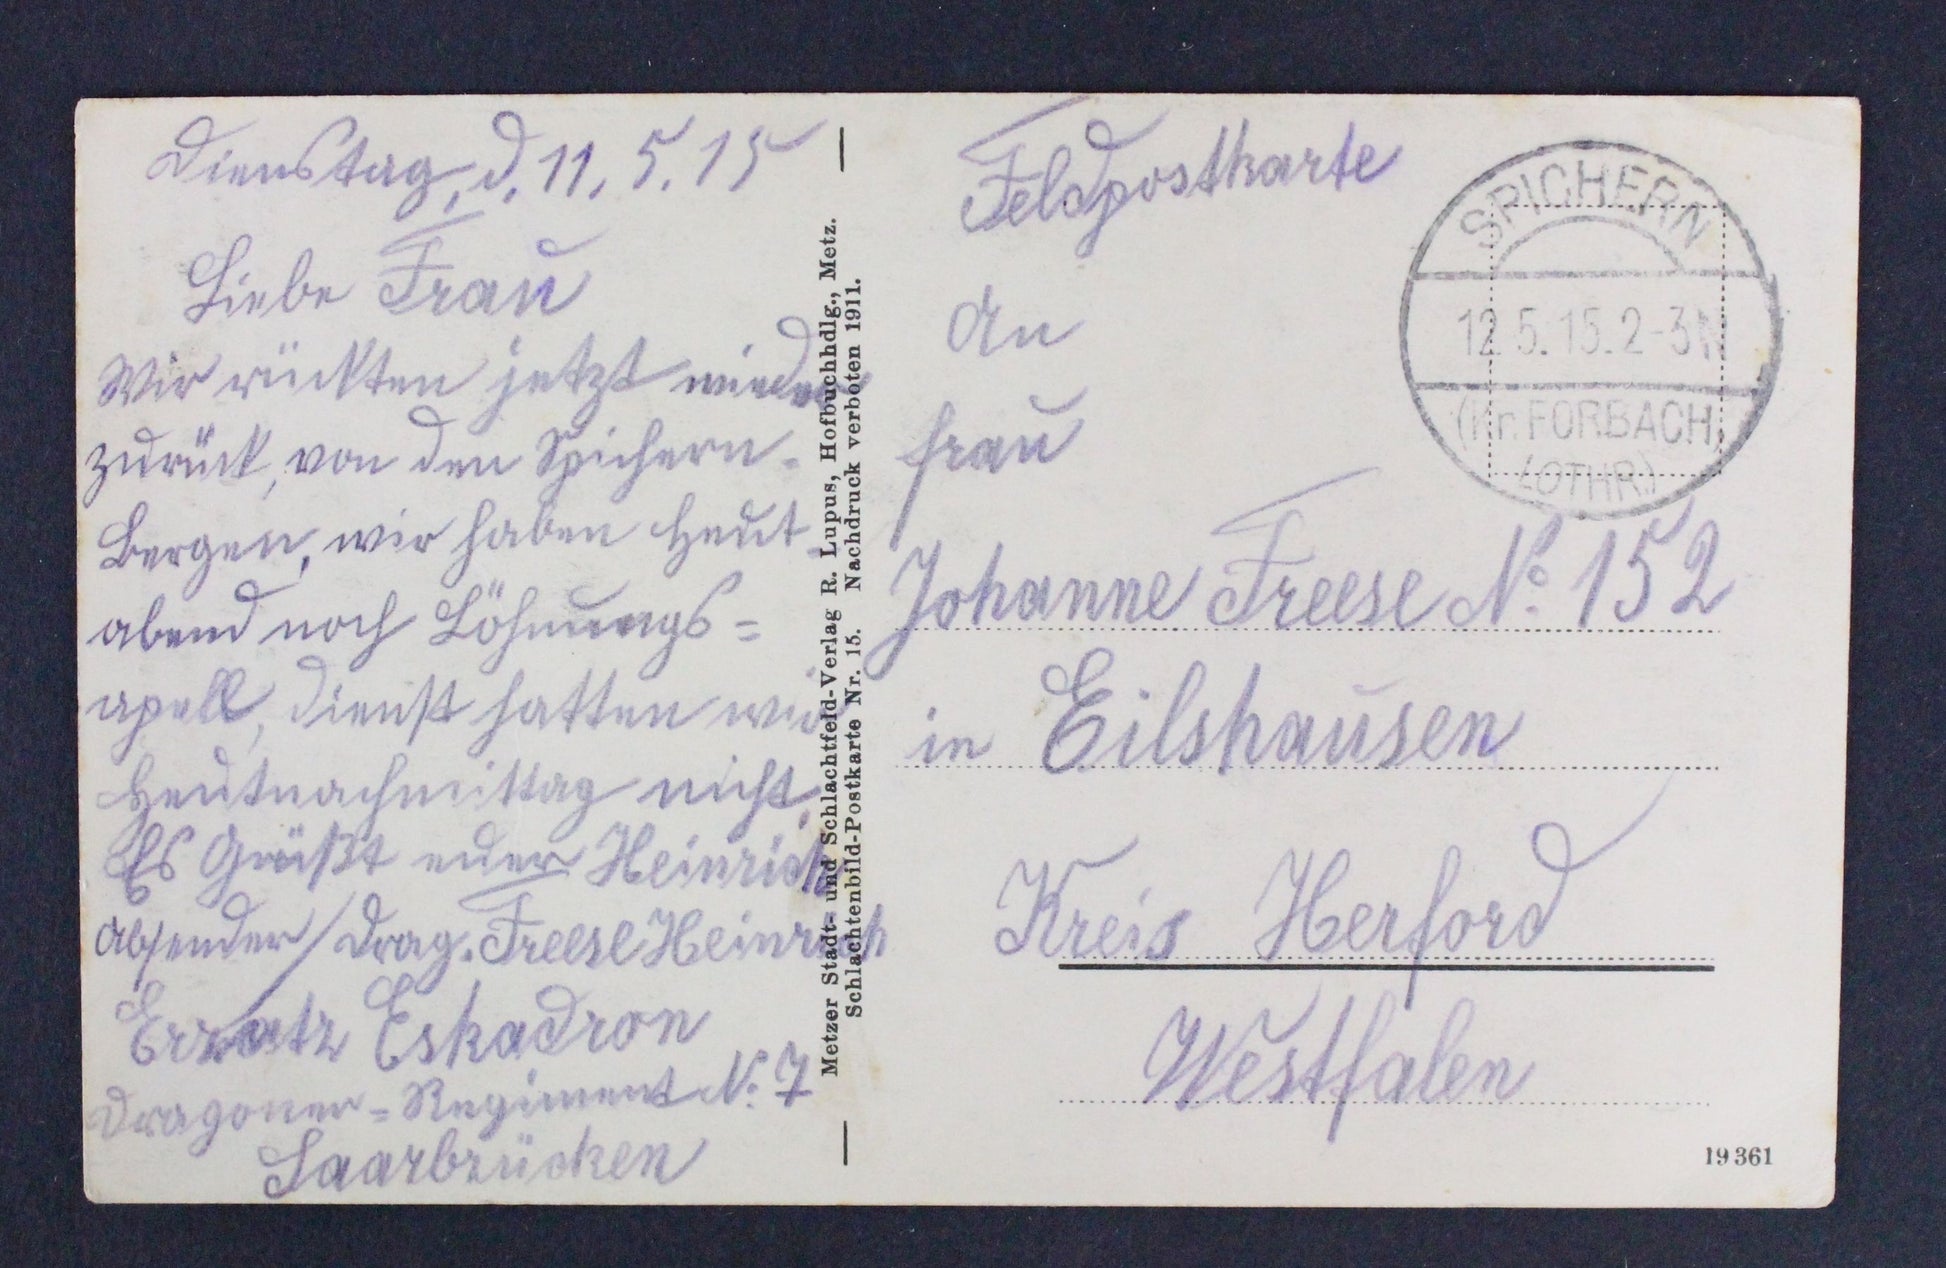 Dienstag, d. 11. 5. 15
Liebe Frau
Wir rückten jetzt wieder
zurück, von den Spichern-
Bergen, wir haben Heut-
abend noch Löhnungs=
apell, Dienst hatten wir
Heutnachmittag nicht.
Es Grüßt euer Heinrich
Absender / Drag. Freese Heinrich
Ersatz Eskadron
Dragoner=Regiment No. 7
Saarbrücken
Metzer Stadt- und Schlachtfeld-Verlag R. Lupus, Hofbuchhdlg., Metz.
Schlachtenbild-Postkarte Nr. 15. Nachdruck verboten 1911.
Feldpostkarte
An
Frau
Johanne Freese No. 152
in Eilshausen
Kreis Herford
Westfalen
SPICHERN
12.5.15.2-3N
(Kr. FORBACH)
(LOTHR.)
19361